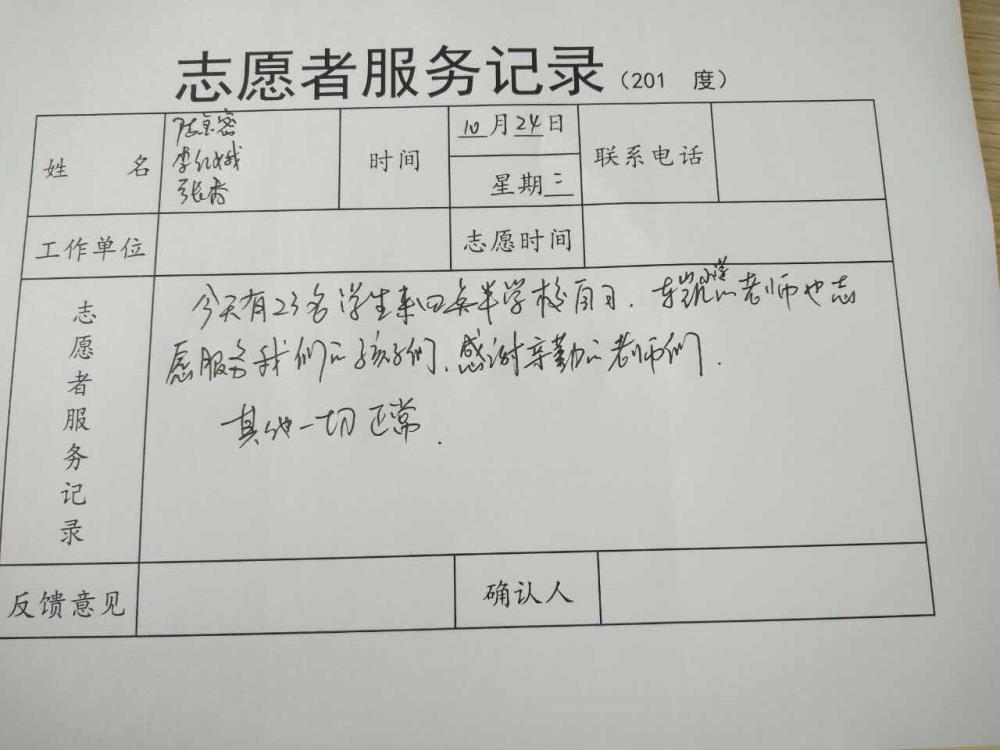 志愿者服务记录（201 度）
姓 名
李红娥
张香
时间
10月24日
星期三
联系电话
工作单位
志愿时间
志愿者服务记录
今天有23名学生来四点半学校自习．老师也志
愿服务我们的孩子们，感谢辛勤的老师们．
其他一切正常．
反馈意见
确认人